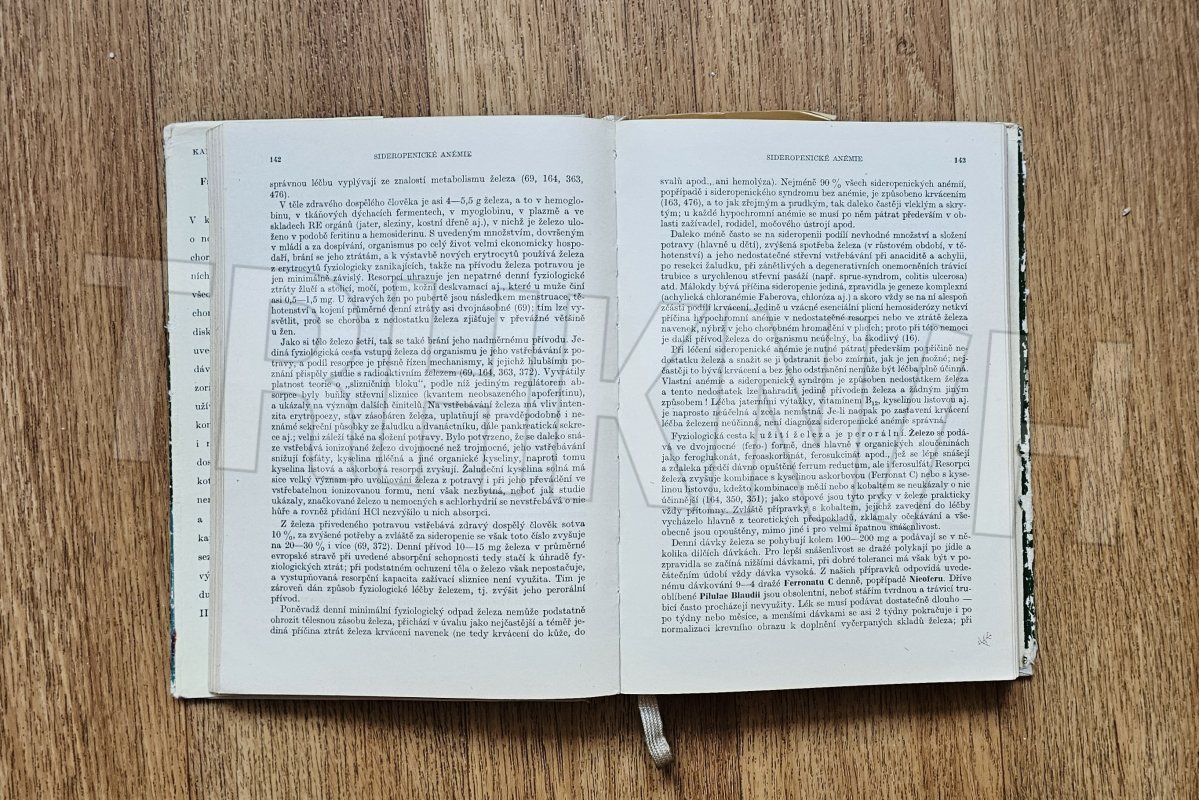 142
SIDEROPENICKÉ ANÉMIE
správnou léčbu vyplývají ze znalostí metabolismu železa (69, 164, 363,
476).
V těle zdravého dospělého člověka je asi 4—5,5 g železa, a to v hemoglo-
binu, v tkáňových dýchacích fermentech, v myoglobinu, v plazmě a ve
skladech RE orgánů (jater, sleziny, kostní dřeně aj.), v nichž je železo ulo-
ženo v podobě feritinu a hemosiderinu. S uvedeným množstvím, dovršeným
v mládí a za dospívání, organismus po celý život velmi ekonomicky hospo-
daří, brání se jeho ztrátám, a k výstavbě nových erytrocytů používá železa
z erytrocytů fyziologicky zanikajících, takže na přívodu železa potravou je
jen minimálně závislý. Resorpcí uhrazuje jen nepatrné denní fyziologické
ztráty žlučí a stolicí, močí, potem, kožní deskvamací aj., které u muže činí
asi 0,5—1,5 mg. U zdravých žen po pubertě jsou následkem menstruace, tě-
hotenství a kojení průměrné denní ztráty asi dvojnásobné (69); tím lze vy-
světlit, proč se choroba z nedostatku železa zjišťuje v převážné většině
u žen.
Jako si tělo železo šetří, tak se také brání jeho nadměrnému přívodu. Je-
diná fyziologická cesta vstupu železa do organismu je jeho vstřebávání z po-
travy, a podíl resorpce je přesně řízen mechanismy, k jejichž hlubšímu po-
znání přispěly studie s radioaktivním železem (69, 164, 363, 372). Vyvrátily
platnost teorie o „slizničním bloku", podle níž jediným regulátorem ab-
sorpce byly buňky střevní sliznice (kvantem neobsazeného apoferitinu),
a ukázaly na význam dalších činitelů. Na vstřebávání železa má vliv inten-
zita erytropoezy, stav zásobáren železa, uplatňují se pravděpodobně i ne-
známé sekreční působky ze žaludku a dvanáctníku, dále pankreatická sekre-
ce aj.; velmi záleží také na složení potravy. Bylo potvrzeno, že se daleko sná-
ze vstřebává ionizované železo dvojmocné než trojmocné, jeho vstřebávání
snižují fosfáty, kyselina mléčná a jiné organické kyseliny, naproti tomu
kyselina listová a askorbová resorpci zvyšují. Žaludeční kyselina solná má
sice velký význam pro uvolňování železa z potravy i při jeho převádění ve
vstřebatelnou ionizovanou formu, není však nezbytná, neboť jak studie
ukázaly, značkované železo u nemocných s achlorhydrií se nevstřebává o nic
hůře a rovněž přidání HCl nezvýšilo u nich absorpci.
Z železa přivedeného potravou vstřebává zdravý dospělý člověk sotva
10 %, za zvýšené potřeby a zvláště za sideropenie se však toto číslo zvyšuje
na 20—30 % i více (69, 372). Denní přívod 10—15 mg železa v průměrné
evropské stravě při uvedené absorpční schopnosti tedy stačí k úhradě fy-
ziologických ztrát; při podstatném ochuzení těla o železo však nepostačuje,
a vystupňovaná resorpční kapacita zažívací sliznice není využita. Tím je
zároveň dán způsob fyziologické léčby železem, tj. zvýšit jeho perorální
přívod.
Poněvadž denní minimální fyziologický odpad železa nemůže podstatně
ohrozit tělesnou zásobu železa, přichází v úvahu jako nejčastější a téměř je-
diná příčina ztrát železa krvácení navenek (ne tedy krvácení do kůže, do
SIDEROPENICKÉ ANÉMIE
143
svalů apod., ani hemolýza). Nejméně 90 % všech sideropenických anémií,
popřípadě i sideropenického syndromu bez anémie, je způsobeno krvácením
(163, 476), a to jak zřejmým a prudkým, tak daleko častěji vleklým a skry-
tým; u každé hypochromní anémie se musí po něm pátrat především v ob-
lasti zažívadel, rodidel, močového ústrojí apod.
Daleko méně často se na sideropenii podílí nevhodné množství a složení
potravy (hlavně u dětí), zvýšená spotřeba železa (v růstovém období, v tě-
hotenství) a jeho nedostatečné střevní vstřebávání při anaciditě a achylii,
po resekci žaludku, při zánětlivých a degenerativních onemocněních trávicí
trubice s urychlenou střevní pasáží (např. sprue-syndrom, colitis ulcerosa)
atd. Málokdy bývá příčina sideropenie jediná, zpravidla je geneze komplexní
(achylická chloranémie Faberova, chloróza aj.) a skoro vždy se na ní alespoň
zčásti podílí krvácení. Jedině u vzácné esenciální plicní hemosiderózy netkví
příčina hypochromní anémie v nedostatečné resorpci nebo ve ztrátě železa
navenek, nýbrž v jeho chorobném hromadění v plicích; proto při této nemoci
je další přívod železa do organismu neúčelný, ba škodlivý (16).
Při léčení sideropenické anémie je nutné pátrat především po příčině ne-
dostatku železa a snažit se ji odstranit nebo zmírnit, jak je jen možné; nej-
častěji to bývá krvácení a bez jeho odstranění nemůže být léčba plně účinná.
Vlastní anémie a sideropenický syndrom je způsoben nedostatkem železa
a tento nedostatek lze nahradit jedině přívodem železa a žádným jiným
způsobem! Léčba jaterními výtažky, vitaminem B12, kyselinou listovou aj.
je naprosto neúčelná a zcela nemístná. Je-li naopak po zastavení krvácení
léčba železem neúčinná, není diagnóza sideropenické anémie správná.
Fyziologická cesta k užití železa je perorální. Železo se podá-
vá ve dvojmocné (fero-) formě, dnes hlavně v organických sloučeninách
jako feroglukonát, feroaskorbinát, ferosukcinát apod., jež se lépe snášejí
a zdaleka předčí dávno opuštěné ferrum reductum, ale i ferosulfát. Resorpci
železa zvyšuje kombinace s kyselinou askorbovou (Ferronat C) nebo s kyse-
linou listovou, kdežto kombinace s mědí nebo s kobaltem se neukázaly o nic
účinnější (164, 350, 351); jako stopové jsou tyto prvky v železe prakticky
vždy přítomny. Zvláště přípravky s kobaltem, jejichž zavedení do léčby
vycházelo hlavně z teoretických předpokladů, zklamaly očekávání a vše-
obecně jsou opouštěny, mimo jiné i pro velmi špatnou snášenlivost.
Denní dávky železa se pohybují kolem 100—200 mg a podávají se v ně-
kolika dílčích dávkách. Pro lepší snášenlivost se dražé polykají po jídle a
zpravidla se začíná nižšími dávkami, při dobré toleranci má však být v po-
čátečním údobí vždy dávka vysoká. Z našich přípravků odpovídá uvede-
nému dávkování 9—4 dražé Ferronatu C denně, popřípadě Nicoferu. Dříve
oblíbené Pilulae Blaudii jsou obsolentní, neboť stářím tvrdnou a trávicí tru-
bicí často procházejí nevyužity. Lék se musí podávat dostatečně dlouho —
po týdny nebo měsíce, a menšími dávkami se asi 2 týdny pokračuje i po
normalizaci krevního obrazu k doplnění vyčerpaných skladů železa; při